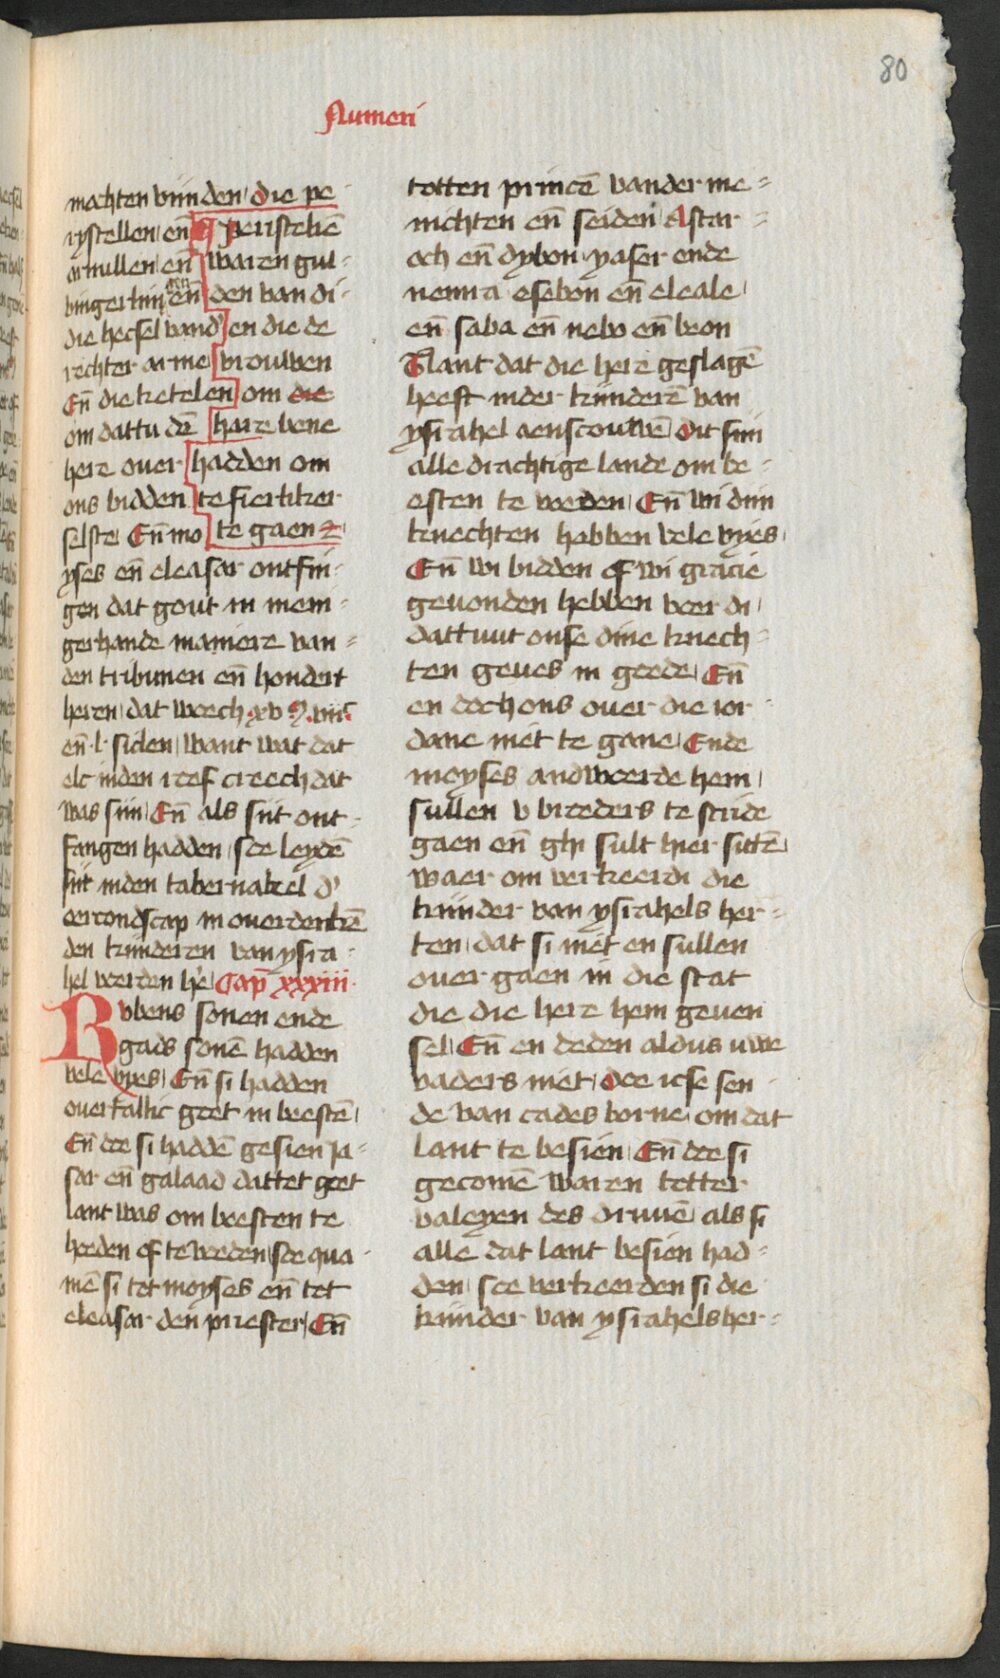 80
Numeri
machten vinden die pe
rystellen en̄ ¶ Peristeliē
armillen en̄ waren gul-
vingerlingen en̄ den van di-
die hecsel vand' en die de
rechter arme vrouwen
En̄ die ketelen om die
om dattu dē hare bene
here ouer hadden om
ons bidden te fiertiker
selste En̄ mo te gaen
yses en̄ eleasar ontfin-
gen dat gout in meni-
gerhande maniere van-
den tribunen en̄ hondert
heren dat woech .xv M. viiᶜ
en̄ .l. siclen want wat dat
elc inden roef creech dat
was sijn En̄ als sijt ont-
fangen hadden soe leydē
sijt inden tabernakel d'
oercondscap in ouerdenkē
den kinderen van ysra-
hel voer den he' Cap̄ xxxiii
Rubens sonen ende
gads sonē hadden
vele vyes En̄ si hadden
ouertallic goet in beestē
En̄ doe si haddē gesien ja-
sar en̄ galaad dattet goet
lant was om beesten te
hoeden of te voeden soe qua-
mē si tot moyses en̄ tot
eleasar den priester En̄
totten princē vander me-
nichten en̄ seiden Astar-
och en̄ dybon yaser ende
nemra esebon en̄ eleale
en̄ saba en̄ nebo en̄ beon
Tlant dat die here geslagē
heeft inder kinderē van
ysrahel aenscouwē dit sijn
alle drachtige lande om be-
esten te voeden En̄ wi dijn
knechten hebben vele vyes
En̄ wi bidden of wi gracie
geuonden hebben voer di
dattuut onse dine knech-
ten geues in goede En̄
en doch ons ouer die ior-
dane niet te gane Ende
moyses andwoerde hem
sullen v broeders te stride
gaen en̄ ghi sult hier sittē
waer om verkeerdi die
kinder van ysrahels her-
ten dat si niet en sullen
ouer gaen in die stat
die die here hem geuen
sel En̄ en deden aldus uwe
vaders niet doe icse sen-
de van cades borne om dat
lant te besien En̄ doe si
gecomē waren totter
valeyen des druuē als si
alle dat lant besien had-
den soe verkeerden si die
kinder van ysrahels her-